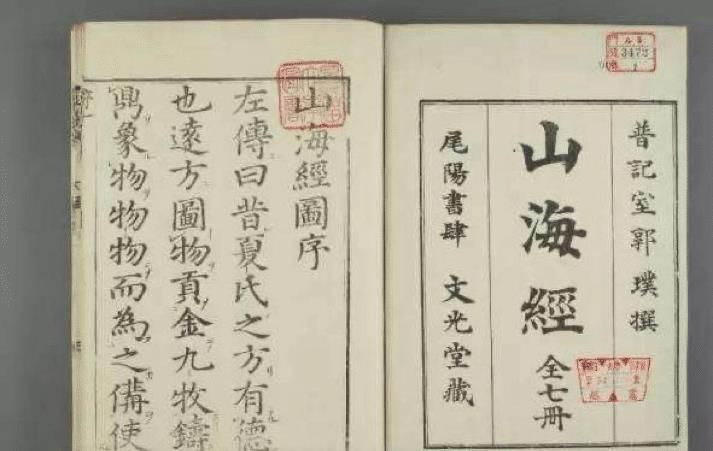 普記室郭璞撰
山海經
全七冊
尾陽書肆 文光堂藏
3473
1
山海經圖序
左傳曰昔夏氏之方有德
也遠方圖物貢金九牧鑄
鼎象物物物而為之備使